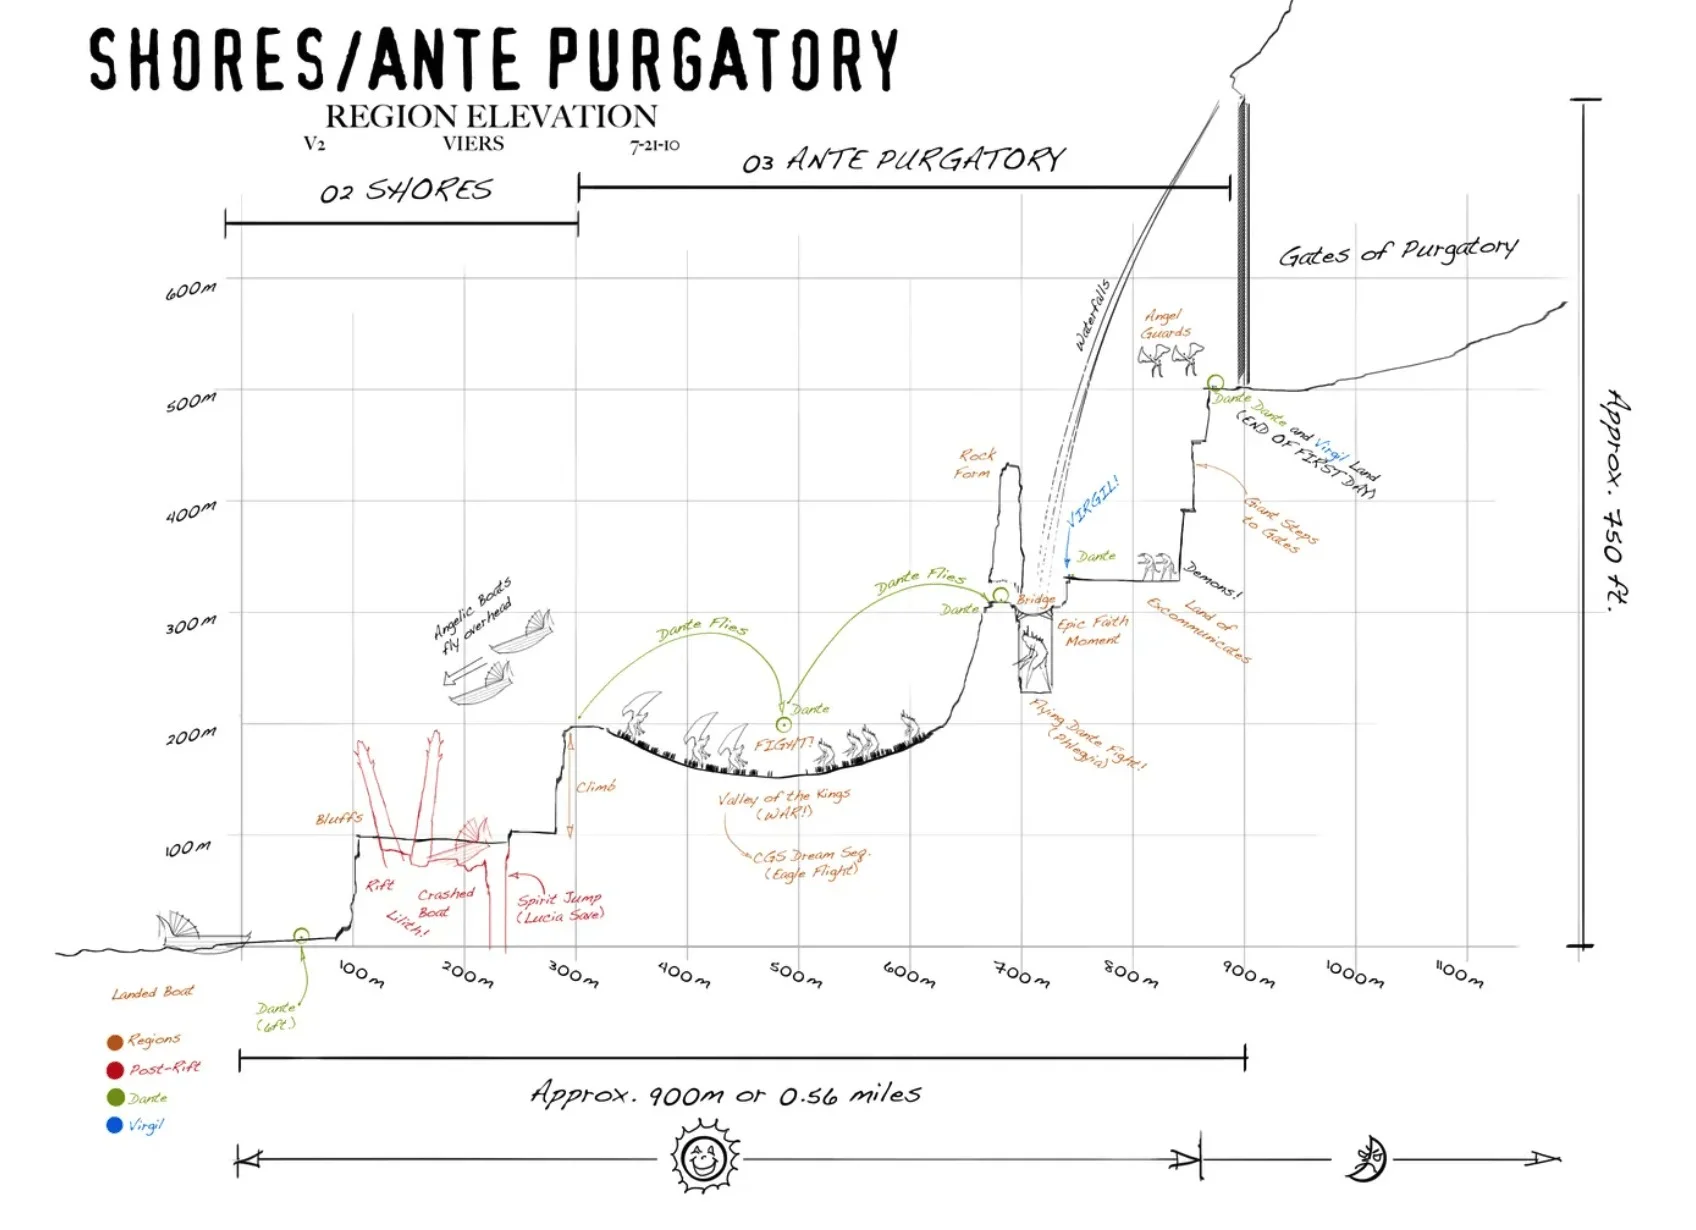 SHORES/ANTE PURGATORY
REGION ELEVATION
V2 VIERS 7-21-10
02 SHORES
03 ANTE PURGATORY
Gates of Purgatory
600m
500m
400m
300m
200m
100m
Waterfalls
Angel
Guards
Dante Dante and Virgil Land
(END OF FIRST DAY)
Rock
Form
VIRGIL!
Dante
Giant Steps
to Gates
Demons!
Land of
Excommunicates
Angelic Boats
fly overhead
Dante Flies
Dante Flies
Dante
Bridge
Epic Faith
Moment
Dante
FIGHT!
Flying Dante Fight!
(Phlegyia)
Climb
Valley of the Kings
(WAR!)
CGS Dream Seq.
(Eagle Flight)
Bluffs
Rift
Lilith!
Crashed
Boat
Spirit Jump
(Lucia Save)
100m 200m 300m 400m 500m 600m 700m 800m 900m 1000m 1100m
Approx. 750 ft.
Landed Boat
Dante
(6ft)
Regions
Post-Rift
Dante
Virgil
Approx. 900m or 0.56 miles